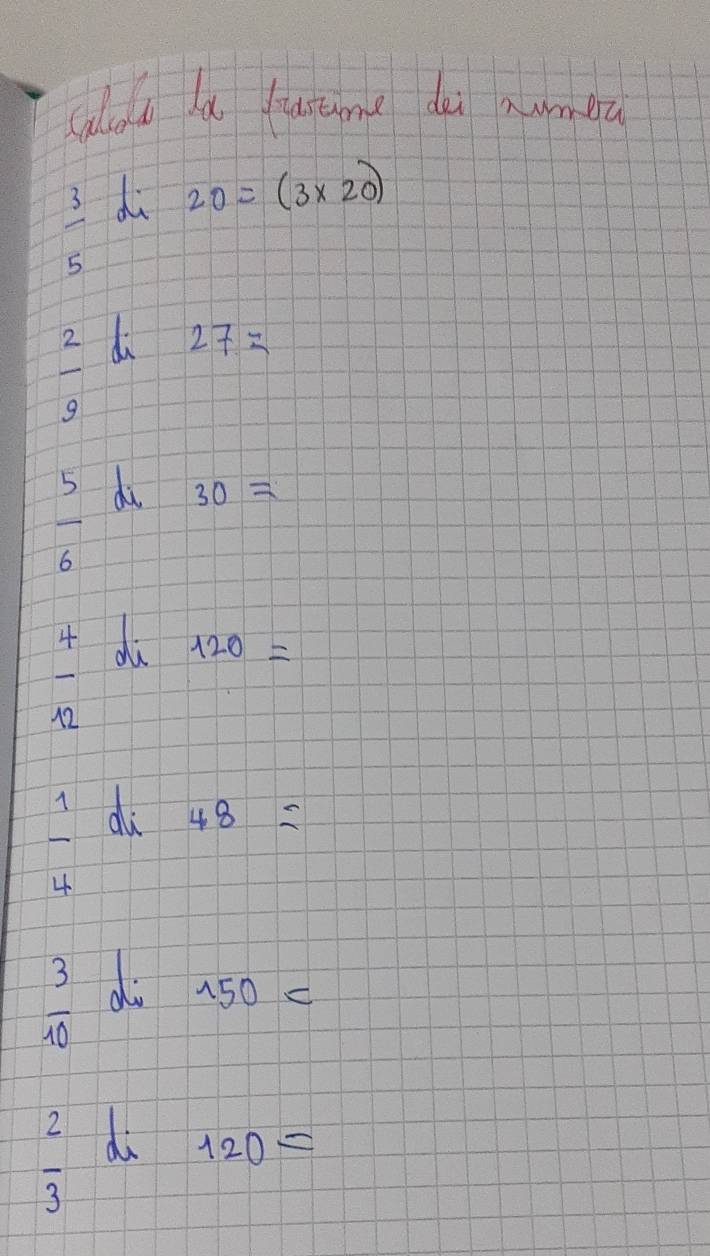 Calcola la frazione dei numeri
3/5 di 20 = (3 x 20)
2/9 di 27 =
5/6 di 30 =
4/12 di 120 =
1/4 di 48 =
3/10 di 150 =
2/3 di 120 =